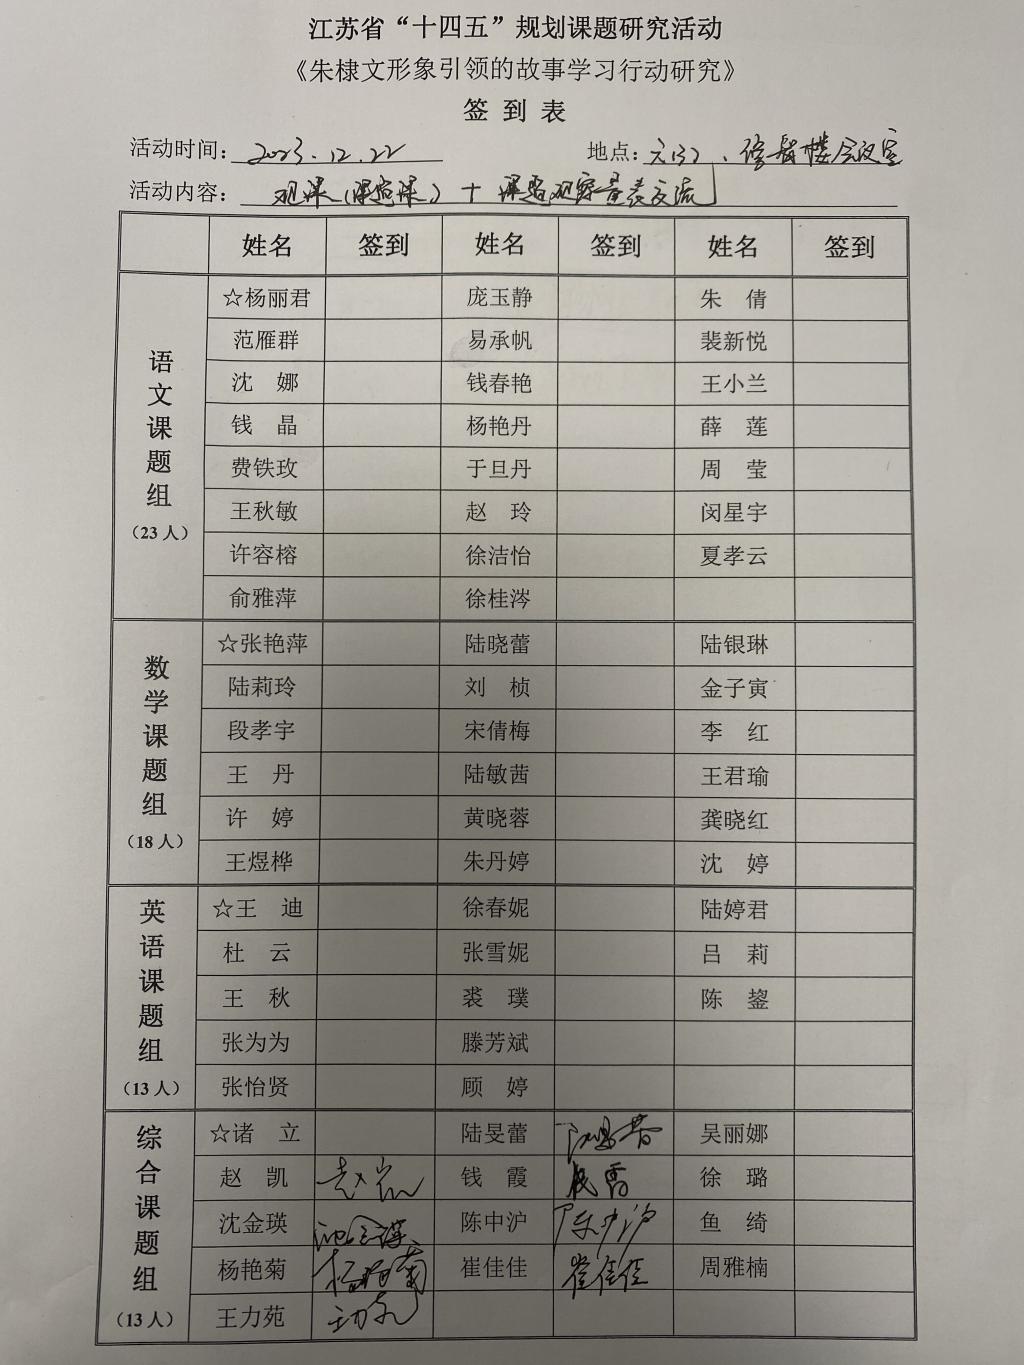 江苏省“十四五”规划课题研究活动
《朱棣文形象引领的故事学习行动研究》
签 到 表
活动时间：2023.12.22 地点：
活动内容：观课
姓名 签到 姓名 签到 姓名 签到
语文课题组
（23人）
☆杨丽君 庞玉静 朱 倩
范雁群 易承帆 裴新悦
沈 娜 钱春艳 王小兰
钱 晶 杨艳丹 薛 莲
费铁玫 于旦丹 周 莹
王秋敏 赵 玲 闵星宇
许容榕 徐洁怡 夏孝云
俞雅萍 徐桂涔
数学课题组
（18人）
☆张艳萍 陆晓蕾 陆银琳
陆莉玲 刘 桢 金子寅
段孝宇 宋倩梅 李 红
王 丹 陆敏茜 王君瑜
许 婷 黄晓蓉 龚晓红
王煜桦 朱丹婷 沈 婷
英语课题组
（13人）
☆王 迪 徐春妮 陆婷君
杜 云 张雪妮 吕 莉
王 秋 裘 璞 陈 鋆
张为为 滕芳斌
张怡贤 顾 婷
综合课题组
（13人）
☆诸 立 陆旻蕾 吴丽娜
赵 凯 赵凯 钱 霞 钱霞 徐 璐
沈金瑛 沈金瑛 陈中沪 陈中沪 鱼 绮
杨艳菊 杨艳菊 崔佳佳 崔佳佳 周雅楠
王力苑